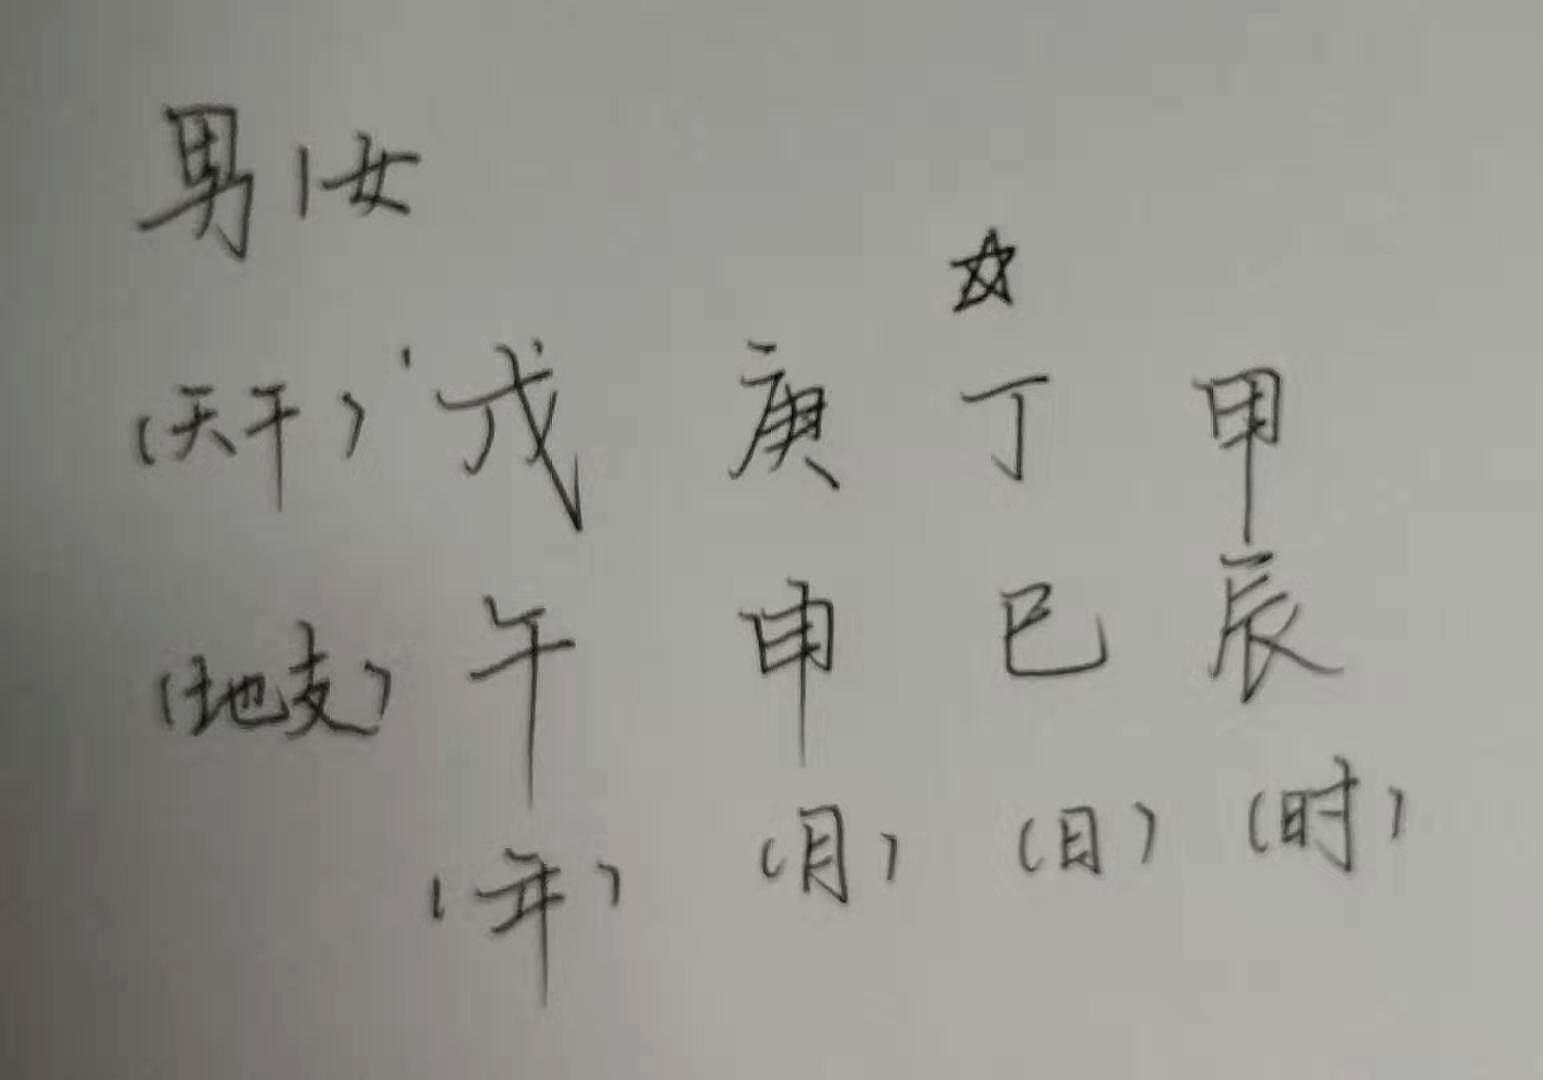 男|女
☆
(天干) 戊 庚 丁 甲
(地支) 午 申 巳 辰
(年) (月) (日) (时)